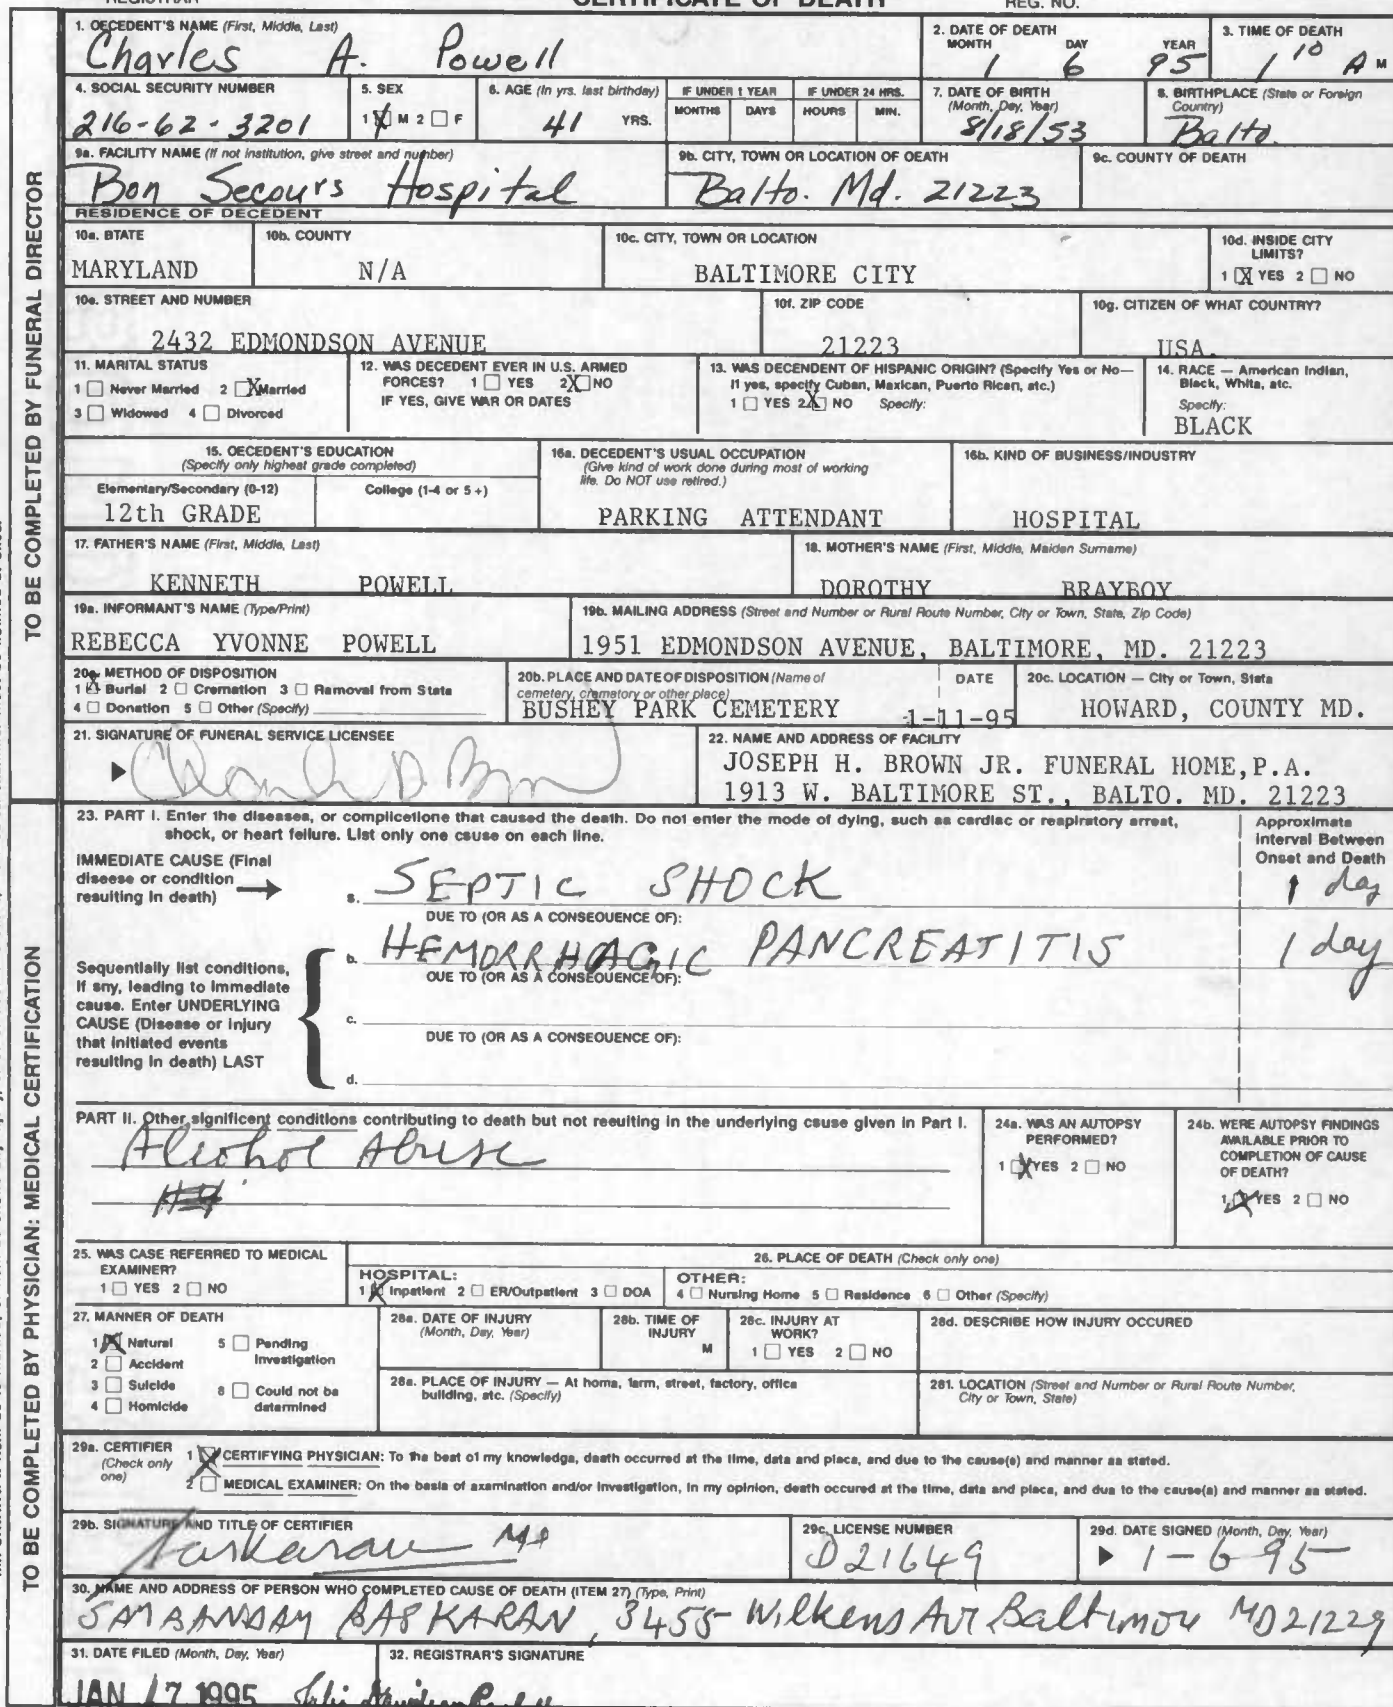 REGISTRAR CERTIFICATE OF DEATH REG. NO.
1. DECEDENT'S NAME (First, Middle, Last)
Charles A. Powell
2. DATE OF DEATH
MONTH DAY YEAR
1 6 95
3. TIME OF DEATH
1 10 A M
4. SOCIAL SECURITY NUMBER
216-62-3201
5. SEX
1 X M 2 □ F
6. AGE (In yrs. last birthday)
41 YRS.
IF UNDER 1 YEAR
MONTHS DAYS
IF UNDER 24 HRS.
HOURS MIN.
7. DATE OF BIRTH
(Month, Day, Year)
8/18/53
8. BIRTHPLACE (State or Foreign
Country)
Balto.
9a. FACILITY NAME (If not institution, give street and number)
Bon Secours Hospital
9b. CITY, TOWN OR LOCATION OF DEATH
Balto. Md. 21223
9c. COUNTY OF DEATH
RESIDENCE OF DECEDENT
10a. STATE
MARYLAND
10b. COUNTY
N/A
10c. CITY, TOWN OR LOCATION
BALTIMORE CITY
10d. INSIDE CITY
LIMITS?
1 X YES 2 □ NO
10e. STREET AND NUMBER
2432 EDMONDSON AVENUE
10f. ZIP CODE
21223
10g. CITIZEN OF WHAT COUNTRY?
USA.
11. MARITAL STATUS
1 □ Never Married 2 X Married
3 □ Widowed 4 □ Divorced
12. WAS DECEDENT EVER IN U.S. ARMED
FORCES? 1 □ YES 2 X NO
IF YES, GIVE WAR OR DATES
13. WAS DECENDENT OF HISPANIC ORIGIN? (Specify Yes or No—
If yes, specify Cuban, Mexican, Puerto Rican, etc.)
1 □ YES 2 X NO Specify:
14. RACE — American Indian,
Black, White, etc.
Specify:
BLACK
15. DECEDENT'S EDUCATION
(Specify only highest grade completed)
Elementary/Secondary (0-12) College (1-4 or 5+)
12th GRADE
16a. DECEDENT'S USUAL OCCUPATION
(Give kind of work done during most of working
life. Do NOT use retired.)
PARKING ATTENDANT
16b. KIND OF BUSINESS/INDUSTRY
HOSPITAL
17. FATHER'S NAME (First, Middle, Last)
KENNETH POWELL
18. MOTHER'S NAME (First, Middle, Maiden Surname)
DOROTHY BRAYBOY
19a. INFORMANT'S NAME (Type/Print)
REBECCA YVONNE POWELL
19b. MAILING ADDRESS (Street and Number or Rural Route Number, City or Town, State, Zip Code)
1951 EDMONDSON AVENUE, BALTIMORE, MD. 21223
20a. METHOD OF DISPOSITION
1 X Burial 2 □ Cremation 3 □ Removal from State
4 □ Donation 5 □ Other (Specify)
20b. PLACE AND DATE OF DISPOSITION (Name of
cemetery, crematory or other place)
BUSHEY PARK CEMETERY
DATE
1-11-95
20c. LOCATION — City or Town, State
HOWARD, COUNTY MD.
21. SIGNATURE OF FUNERAL SERVICE LICENSEE
22. NAME AND ADDRESS OF FACILITY
JOSEPH H. BROWN JR. FUNERAL HOME,P.A.
1913 W. BALTIMORE ST., BALTO. MD. 21223
TO BE COMPLETED BY FUNERAL DIRECTOR
23. PART I. Enter the diseases, or complications that caused the death. Do not enter the mode of dying, such as cardiac or respiratory arrest,
shock, or heart failure. List only one cause on each line.
Approximate
Interval Between
Onset and Death
IMMEDIATE CAUSE (Final
disease or condition
resulting in death) →
a. SEPTIC SHOCK 1 day
DUE TO (OR AS A CONSEQUENCE OF):
b. HEMORRHAGIC PANCREATITIS 1 day
DUE TO (OR AS A CONSEQUENCE OF):
Sequentially list conditions,
if any, leading to immediate
cause. Enter UNDERLYING
CAUSE (Disease or injury
that initiated events
resulting in death) LAST
c.
DUE TO (OR AS A CONSEQUENCE OF):
d.
PART II. Other significant conditions contributing to death but not resulting in the underlying cause given in Part I.
Alcohol Abuse
24a. WAS AN AUTOPSY
PERFORMED?
1 X YES 2 □ NO
24b. WERE AUTOPSY FINDINGS
AVAILABLE PRIOR TO
COMPLETION OF CAUSE
OF DEATH?
1 X YES 2 □ NO
25. WAS CASE REFERRED TO MEDICAL
EXAMINER?
1 □ YES 2 □ NO
26. PLACE OF DEATH (Check only one)
HOSPITAL:
1 X Inpatient 2 □ ER/Outpatient 3 □ DOA
OTHER:
4 □ Nursing Home 5 □ Residence 6 □ Other (Specify)
27. MANNER OF DEATH
1 X Natural 5 □ Pending
Investigation
2 □ Accident
3 □ Suicide 6 □ Could not be
determined
4 □ Homicide
28a. DATE OF INJURY
(Month, Day, Year)
28b. TIME OF
INJURY
M
28c. INJURY AT
WORK?
1 □ YES 2 □ NO
28d. DESCRIBE HOW INJURY OCCURED
28e. PLACE OF INJURY — At home, farm, street, factory, office
building, etc. (Specify)
28f. LOCATION (Street and Number or Rural Route Number,
City or Town, State)
29a. CERTIFIER
(Check only
one)
1 X CERTIFYING PHYSICIAN: To the best of my knowledge, death occurred at the time, date and place, and due to the cause(s) and manner as stated.
2 □ MEDICAL EXAMINER: On the basis of examination and/or investigation, in my opinion, death occured at the time, date and place, and due to the cause(s) and manner as stated.
29b. SIGNATURE AND TITLE OF CERTIFIER
Baskaran MD
29c. LICENSE NUMBER
D21649
29d. DATE SIGNED (Month, Day, Year)
▶ 1-6-95
30. NAME AND ADDRESS OF PERSON WHO COMPLETED CAUSE OF DEATH (ITEM 27) (Type, Print)
SAMBANDAM BASKARAN, 3455 Wilkens Ave Baltimore MD 21229
31. DATE FILED (Month, Day, Year)
JAN 17 1995
32. REGISTRAR'S SIGNATURE
TO BE COMPLETED BY PHYSICIAN: MEDICAL CERTIFICATION